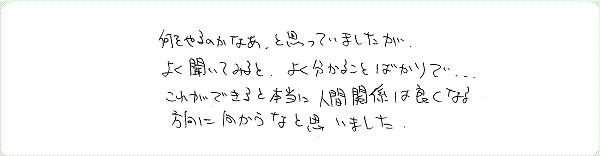 何をやるのかなあ、と思っていましたが、
よく聞いてみると、よく分かることばかりで...
これができると本当に人間関係は良くなる
方向に向かうなと思いました.